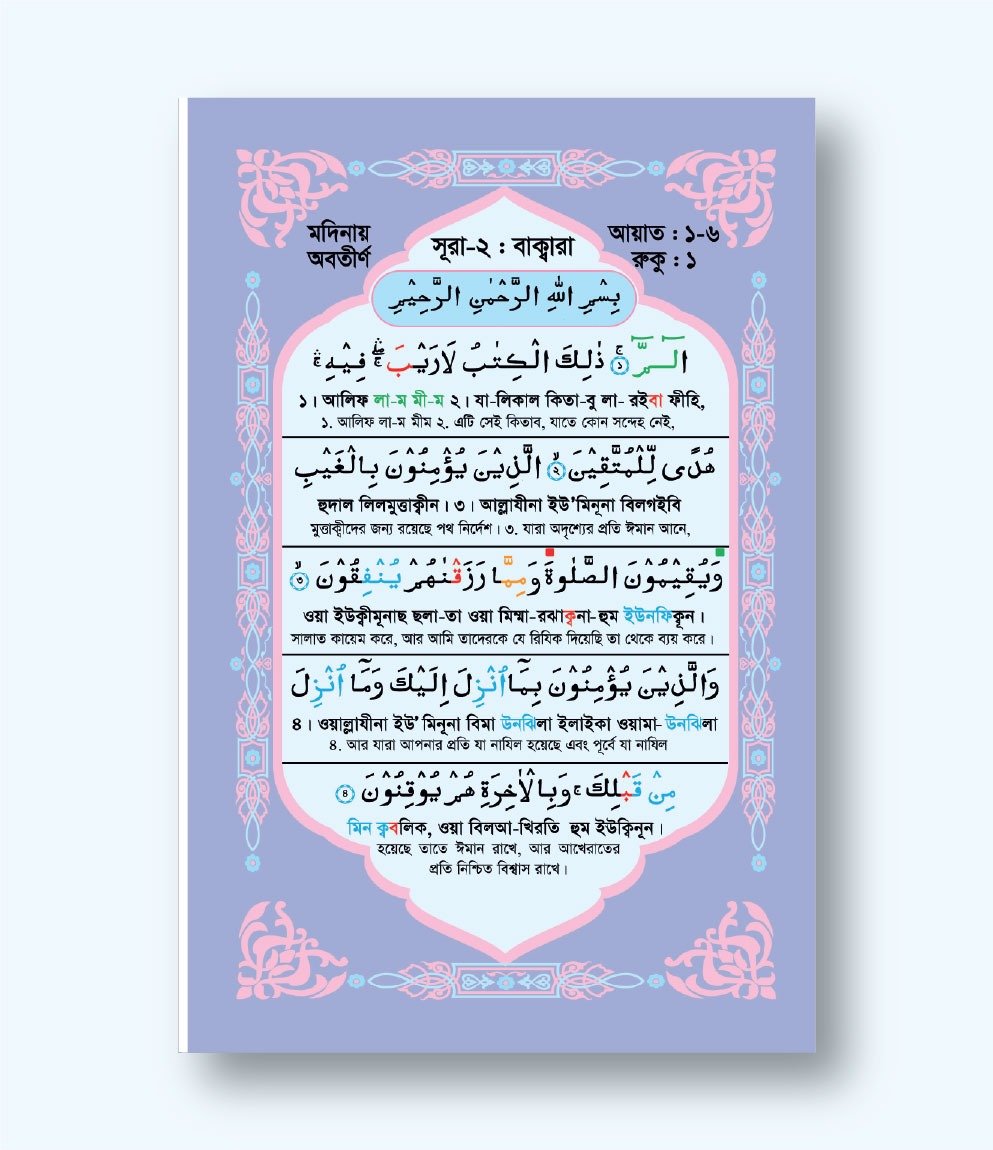 মদিনায়
অবতীর্ণ
সূরা-২ : বাক্বারা
আয়াত : ১-৬
রুকু : ১
بِسْمِ اللهِ الرَّحْمٰنِ الرَّحِيْمِ
الٓـمّٓ ۚ ۝١ ذٰلِكَ الْكِتٰبُ لَا رَيْبَ ۛۖ فِيْهِ ۛ
১। আলিফ লা-ম মী-ম ২। যা-লিকাল কিতা-বু লা- রইবা ফীহি,
১. আলিফ লা-ম মীম ২. এটি সেই কিতাব, যাতে কোন সন্দেহ নেই,
هُدًى لِّلْمُتَّقِيْنَ ۙ ۝٢ الَّذِيْنَ يُؤْمِنُوْنَ بِالْغَيْبِ
হুদাল লিলমুত্তাক্বীন। ৩। আল্লাযীনা ইউ'মিনূনা বিলগইবি
মুত্তাক্বীদের জন্য রয়েছে পথ নির্দেশ। ৩. যারা অদৃশ্যের প্রতি ঈমান আনে,
وَيُقِيْمُوْنَ الصَّلٰوةَ وَمِمَّا رَزَقْنٰهُمْ يُنْفِقُوْنَ ۙ ۝٣
ওয়া ইউক্বীমূনাছ ছলা-তা ওয়া মিম্মা-রঝাক্বনা-হুম ইউনফিক্বূন।
সালাত কায়েম করে, আর আমি তাদেরকে যে রিযিক দিয়েছি তা থেকে ব্যয় করে।
وَالَّذِيْنَ يُؤْمِنُوْنَ بِمَآ اُنْزِلَ اِلَيْكَ وَمَآ اُنْزِلَ
৪। ওয়াল্লাযীনা ইউ' মিনূনা বিমা উনঝিলা ইলাইকা ওয়ামা- উনঝিলা
৪. আর যারা আপনার প্রতি যা নাযিল হয়েছে এবং পূর্বে যা নাযিল
مِنْ قَبْلِكَ ۚ وَبِالْاٰخِرَةِ هُمْ يُوْقِنُوْنَ ۝٤
মিন ক্ববলিক, ওয়া বিলআ-খিরতি হুম ইউক্বিনূন।
হয়েছে তাতে ঈমান রাখে, আর আখেরাতের
প্রতি নিশ্চিত বিশ্বাস রাখে।